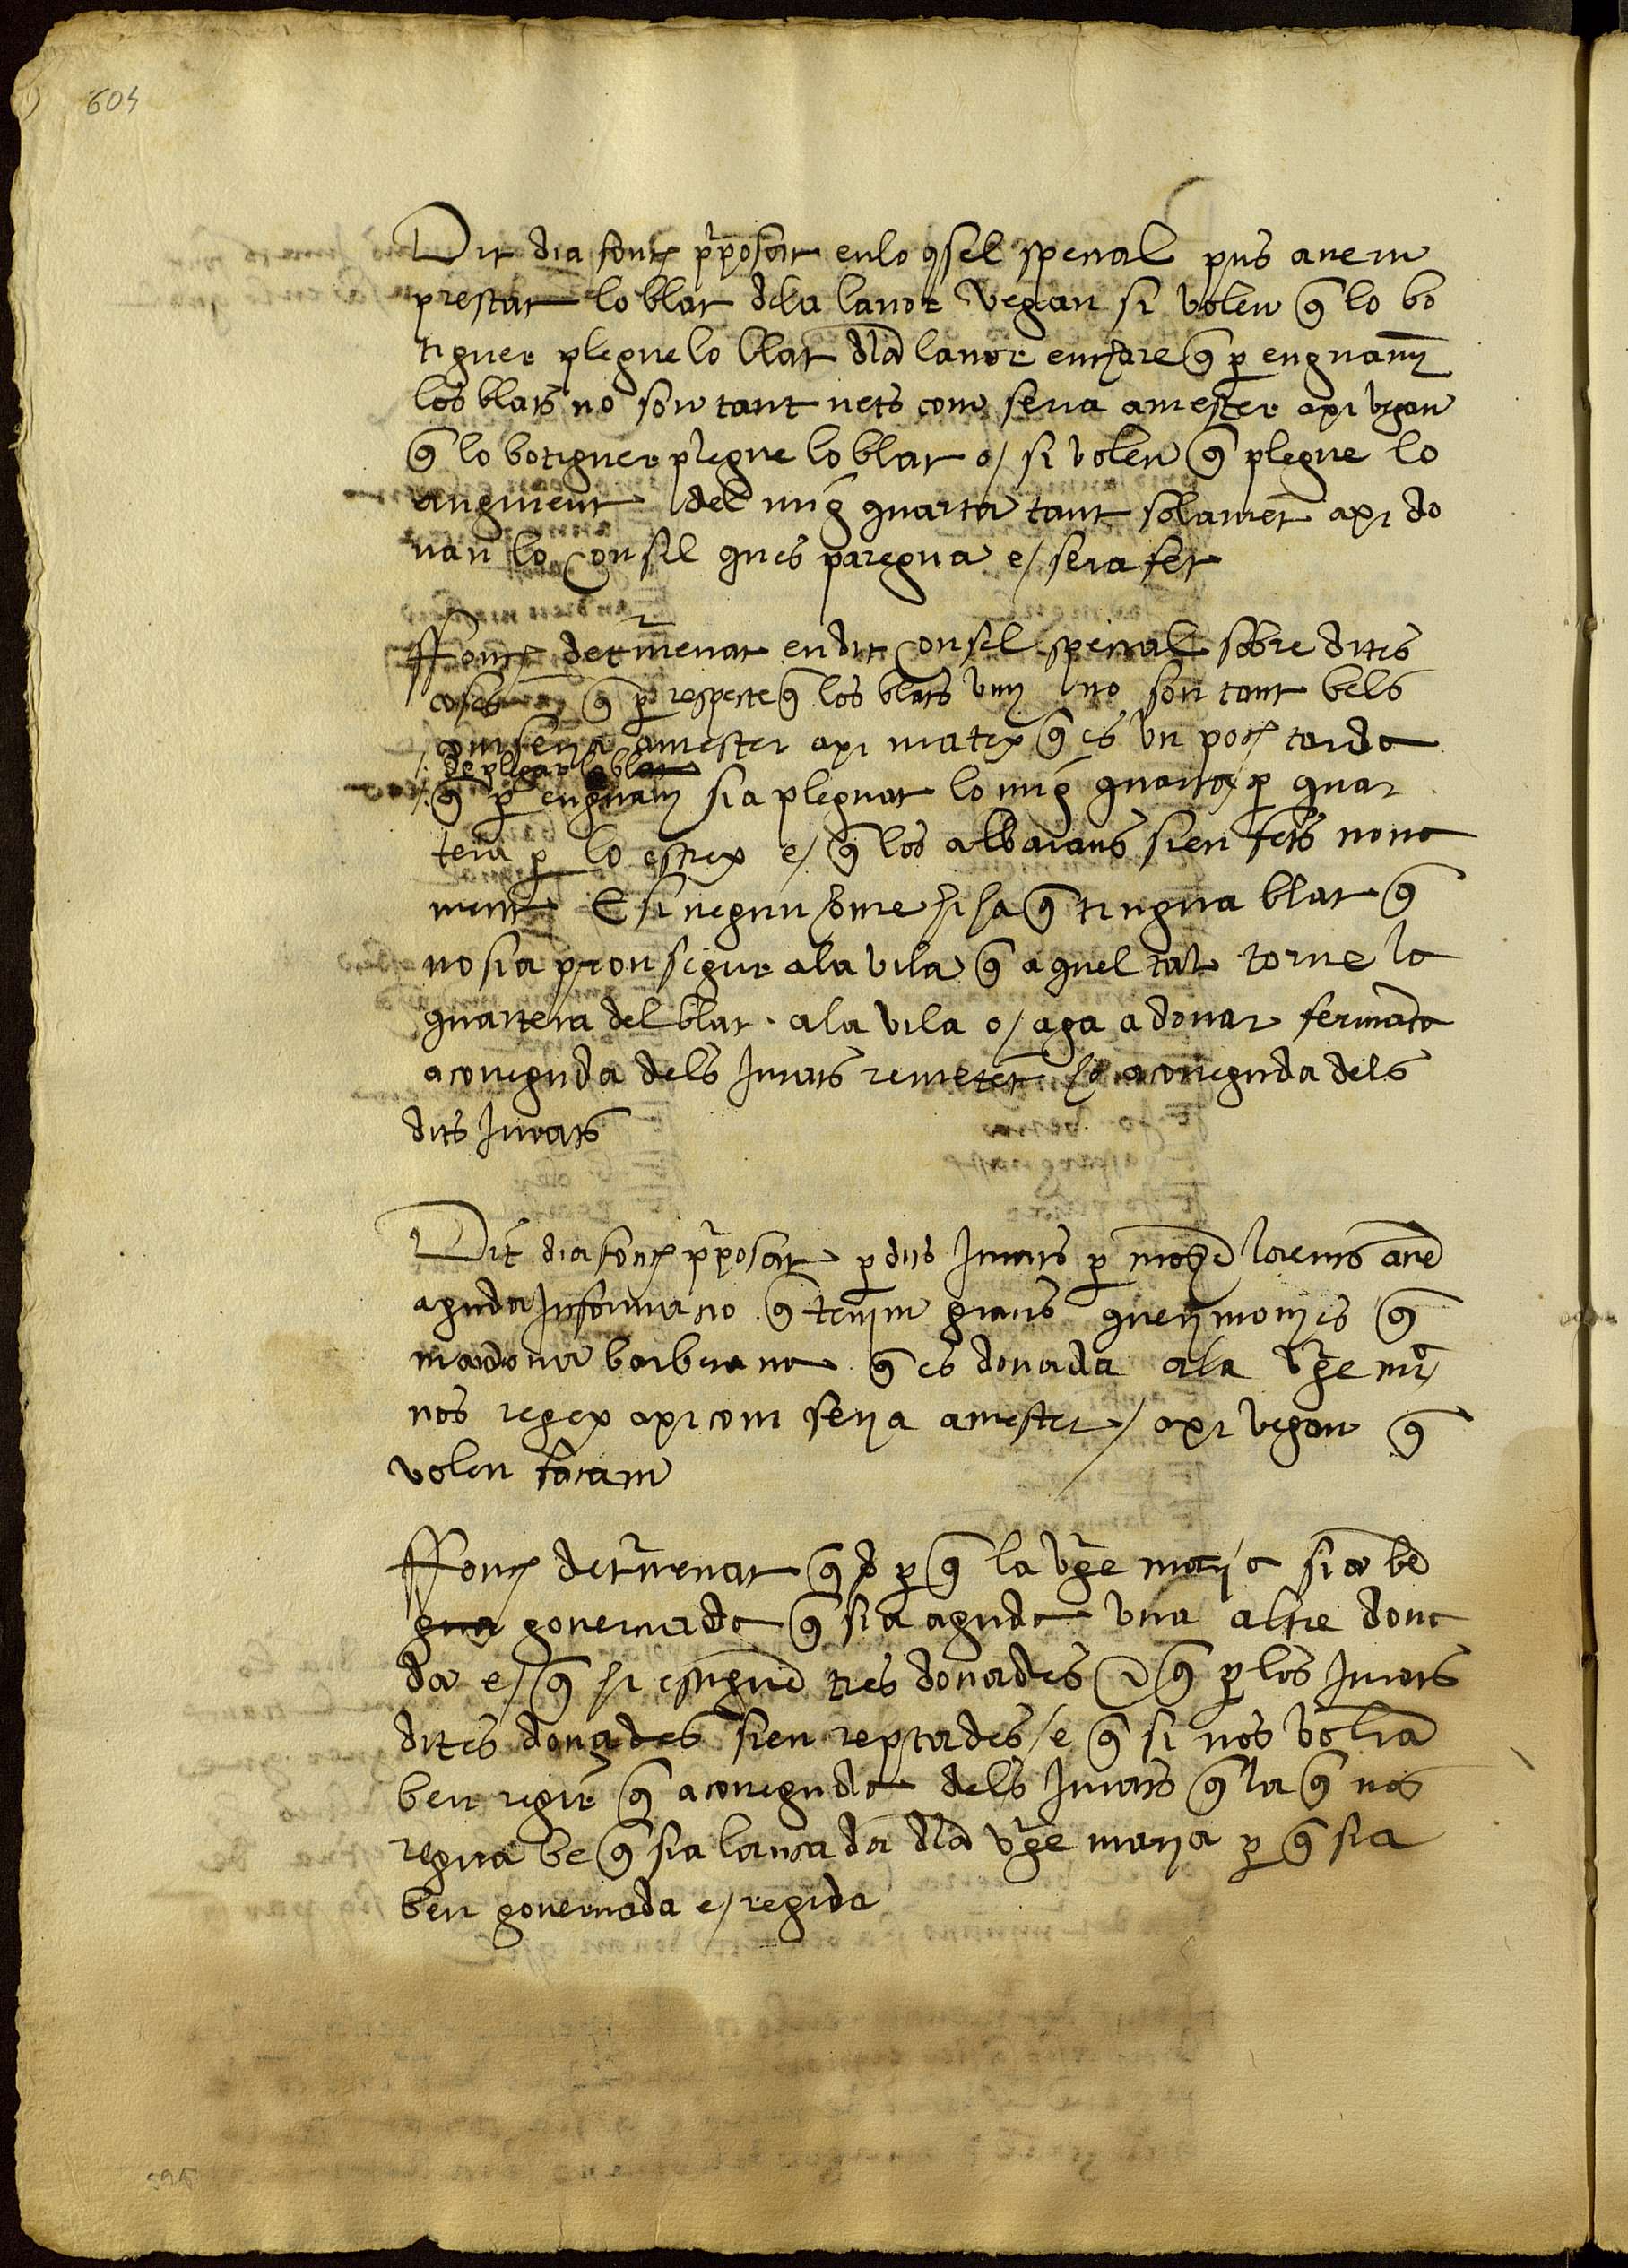 604
Dit dia fonch p̃posat en lo 9sel special pus avem
prestat lo blat dela lavor vegan si volen q̃ lo bo
tiguer plegue lo blat dla lavor encare q̃ p enguany
los blats no son tant nets com seria amester axi vegan
q̃ lo botiguer plegue lo blat o/ si volen q̃ plegue lo
augment del mig quarta tant solamẽt axi do
nau lo Consel ques paregua e/ sera fet
Ffonch detr̃menat en dit Consel special sobre dites
coses q̃ p respecte q̃ los blats vuy no son tant bels
com seria amester axi matex q̃ es vn poch tarda
de plegar lo blat
q̃ p enguany sia plegat lo mig quarta p quar
tera p lo estrex e/ q̃ los albarans sien fets nova
ment E si negun home hi ha q̃ tingua blat q̃
no sia pron segur ala vila q̃ aquel tal torne la
quartera del blat ala vila o/ aga a donar fermãça
a coneguda dels Jurats remetẽt ho a coneguda dels
dits Jurats
Dit dia fonch p̃posat p dits Jurats p moss lorens avẽ
aguda Informacio q̃ tenim grans querymonyes q̃
madona barbera na q̃ es donada ala vg̃e mr̃
nos regex axi com serya amester/ axi vegan q̃
volen façam
Ffonch detr̃menat q̃ p q̃ la vg̃e marya sia bẽ
gua governada q̃ sia aguda una altre dona
da e/ q̃ hi estiguẽ tres donades e q̃ p los Jurats
dites donades sien reptades/ e q̃ si nos voliã
ben regir q̃ a coneguda dels Jurats q̃ la q̃ nos
regua be q̃ sia lançada dla vg̃e marya p q̃ sia
ben governada e/ regida
595